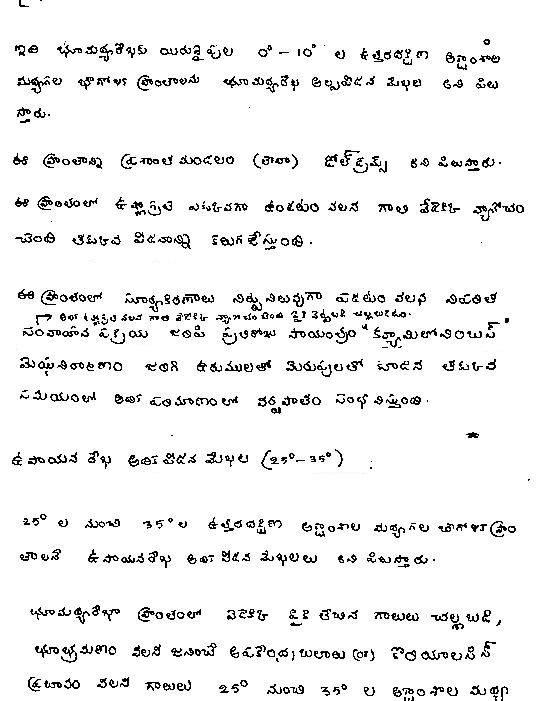 ఇది భూమధ్యరేఖకు యిరువైపుల 0° – 10° ల ఉత్తరదక్షిణ అక్షాంశాల
మధ్యగల భౌగోళిక ప్రాంతాలను భూమధ్యరేఖ అల్పపీడన మేఖల అని పిలు
స్తారు.
ఈ ప్రాంతాన్ని ప్రశాంత మండలం (లేదా) డోల్‌డ్రమ్స్ అని పిలుస్తారు.
ఈ ప్రాంతంలో ఉష్ణోగ్రత ఎక్కువగా ఉండటం వలన గాలి వేడెక్కి వ్యాకోచం
చెంది తక్కువ పీడనాన్ని కలుగజేస్తుంది.
ఈ ప్రాంతంలో సూర్యకిరణాలు నిట్టనిలువుగా పడటం వలన
→ అధిక ఉష్ణోగ్రత వలన గాలి వేడెక్కి వ్యాకోచం చెంది పైకి
సంవాహన ప్రక్రియ జరిపి ప్రతిరోజు సాయంత్రం "క్యుములోనింబస్"
మేఘనిర్మాణం జరిగి ఉరుములతో మెరుపులతో కూడిన తక్కువ
సమయంలో అధిక పరిమాణంలో వర్షపాతం సంభవిస్తుంది.
ఉపాయన రేఖ అధిక పీడన మేఖల (25° – 35°)
25° ల నుంచి 35° ల ఉత్తరదక్షిణ అక్షాంశాల మధ్యగల భౌగోళిక ప్రాం
తాలనే ఉపాయనరేఖ అధిక పీడన మేఖలలు అని పిలుస్తారు.
భూమధ్యరేఖా ప్రాంతంలో వేడెక్కి పైకి లేచిన గాలులు చల్లబడి,
భూభ్రమణం వలన జనించే అపకేంద్ర బలాలు (or) కొరియాలసిస్
ప్రభావం వలన గాలులు 25° నుంచి 35° ల అక్షాంశాల మధ్య